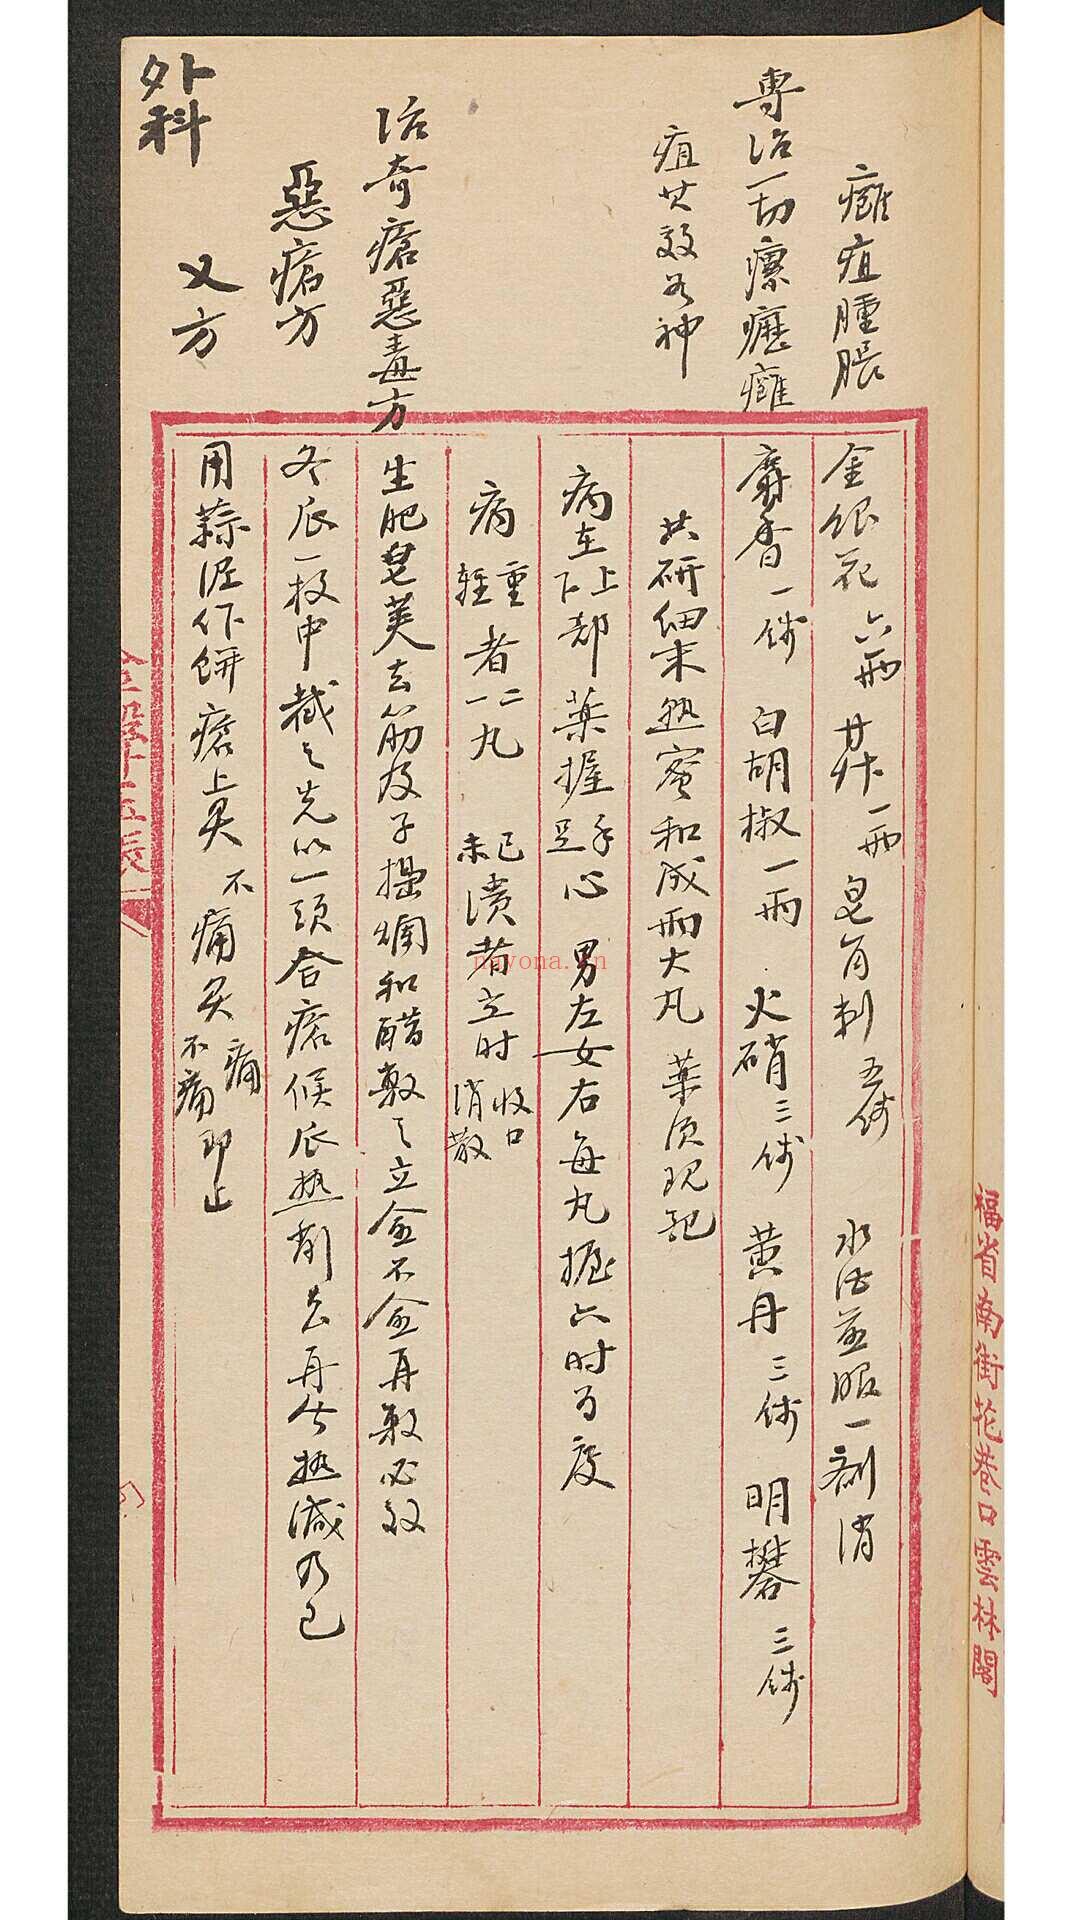 癰疽腫脹
金銀花 六兩 艹 一兩 皂角刺 五钱 水酒並服一劑消
專治一切瘰癧癰
麝香 一钱 白胡椒一兩 火硝三钱 黃丹三钱 明礬三钱
疽其效如神
共研細末熟蜜和成兩大丸 藥須現配
病在上下部 藥握手足心 男左女右每丸握六时为度
病重輕者二一丸 已未潰者立时收口消散
治奇瘡惡毒方
生肥皂莢去筋及子搗爛和醋敷之立愈不愈再敷必效
惡瘡方
冬瓜一枚中截之先以一頭合瘡候瓜热削去再合热減乃已
又方
用蒜泥作餅瘡上灸不痛灸痛 痛灸不痛即止
外科
福省南街花巷口雲林閣
nayona.cn